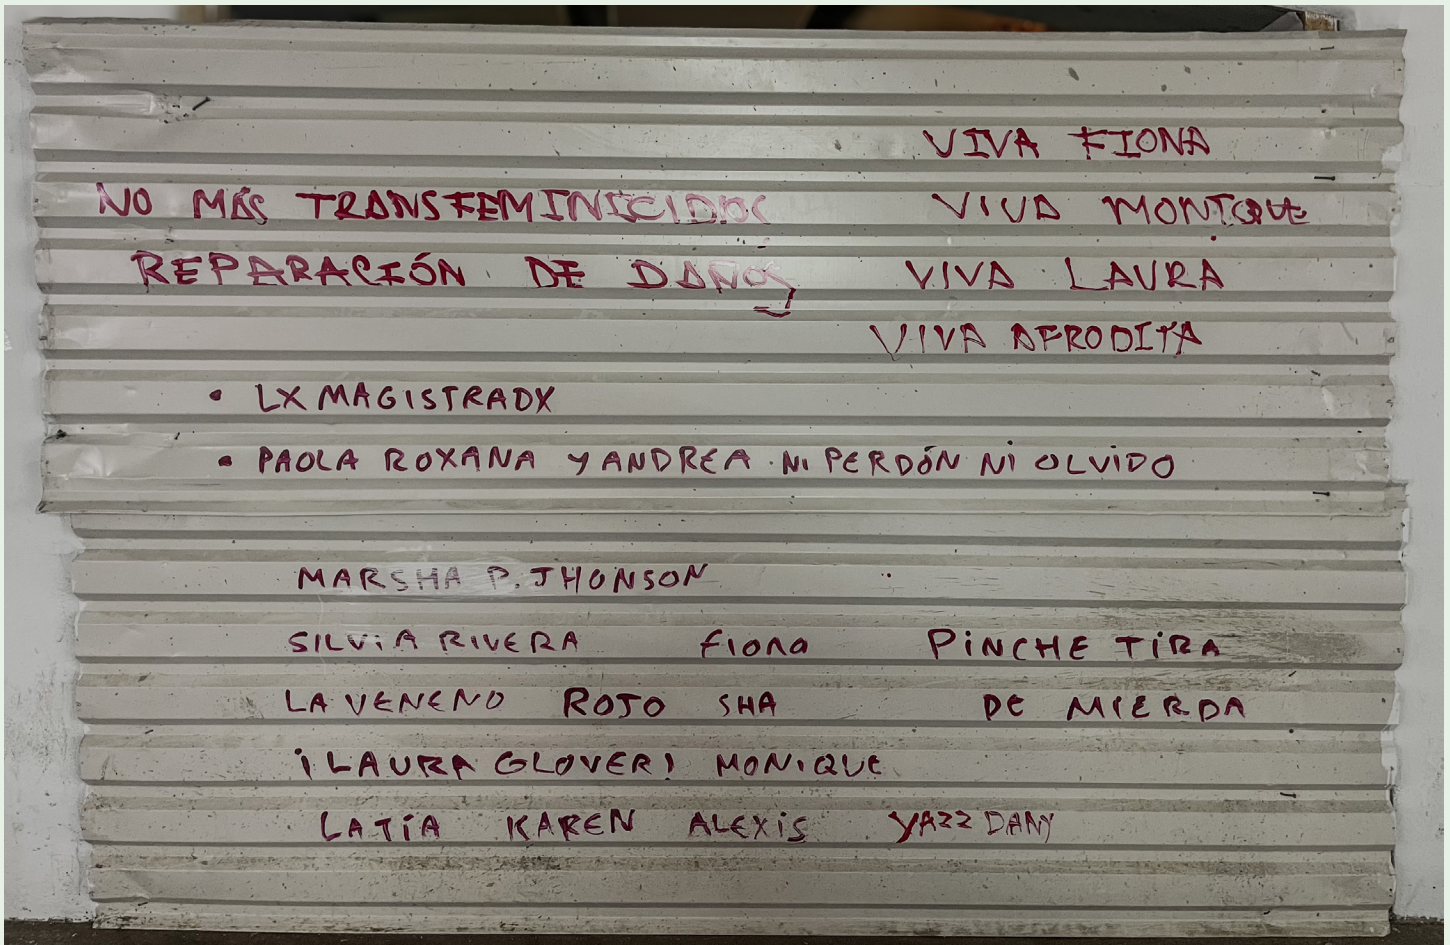 VIVA FIONA
NO MÁS TRANSFEMINICIDIOS VIVA MONIQUE
REPARACIÓN DE DAÑOS VIVA LAURA
VIVA AFRODITA
• LX MAGISTRADX
• PAOLA ROXANA Y ANDREA NI PERDÓN NI OLVIDO
MARSHA P. JHONSON
SILViA RIVERA fiona PiNCHE TiRA
LA VENENO ROJO SHA DE MIERDA
¡LAURA GLOVER! MONIQUE
LA TíA KAREN ALEXIS YAZZ DANY